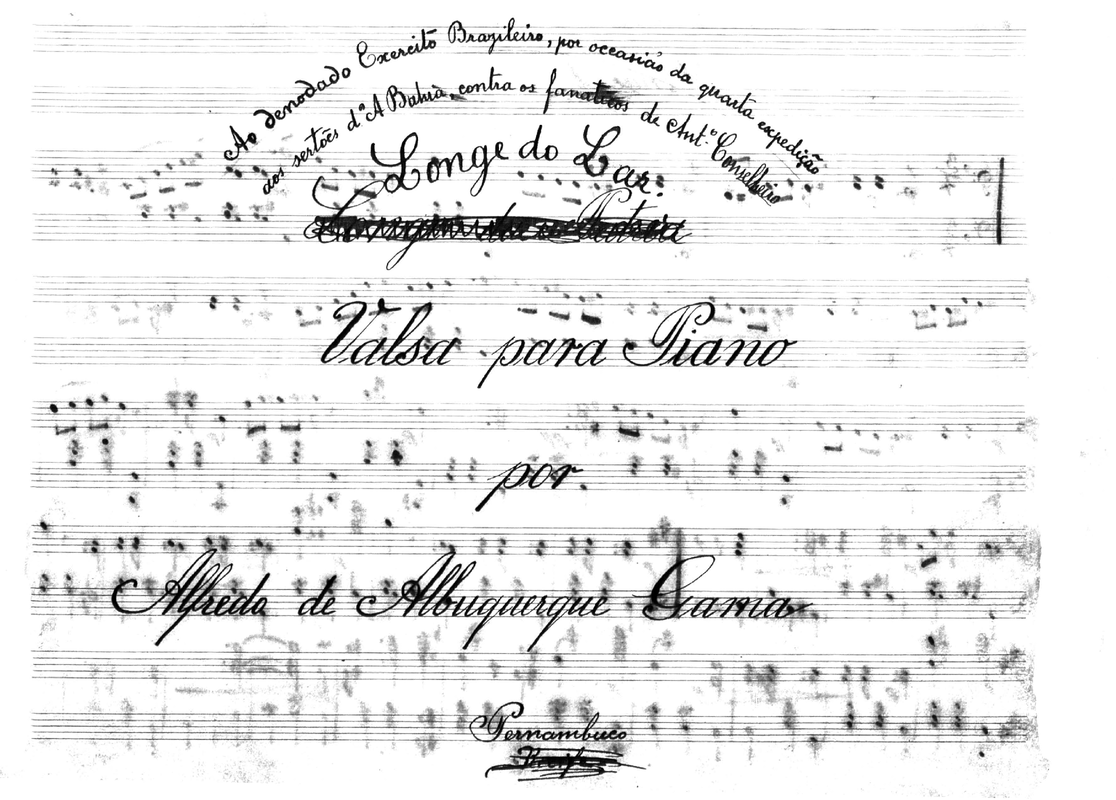 Ao denodado Exercito Brazileiro, por occasião da quarta expedição
aos sertões d'A Bahia, contra os fanaticos de Antº Conselheiro
Longe do Lar.
Valsa para Piano
por
Alfredo de Albuquerque Gama
Pernambuco
Recife